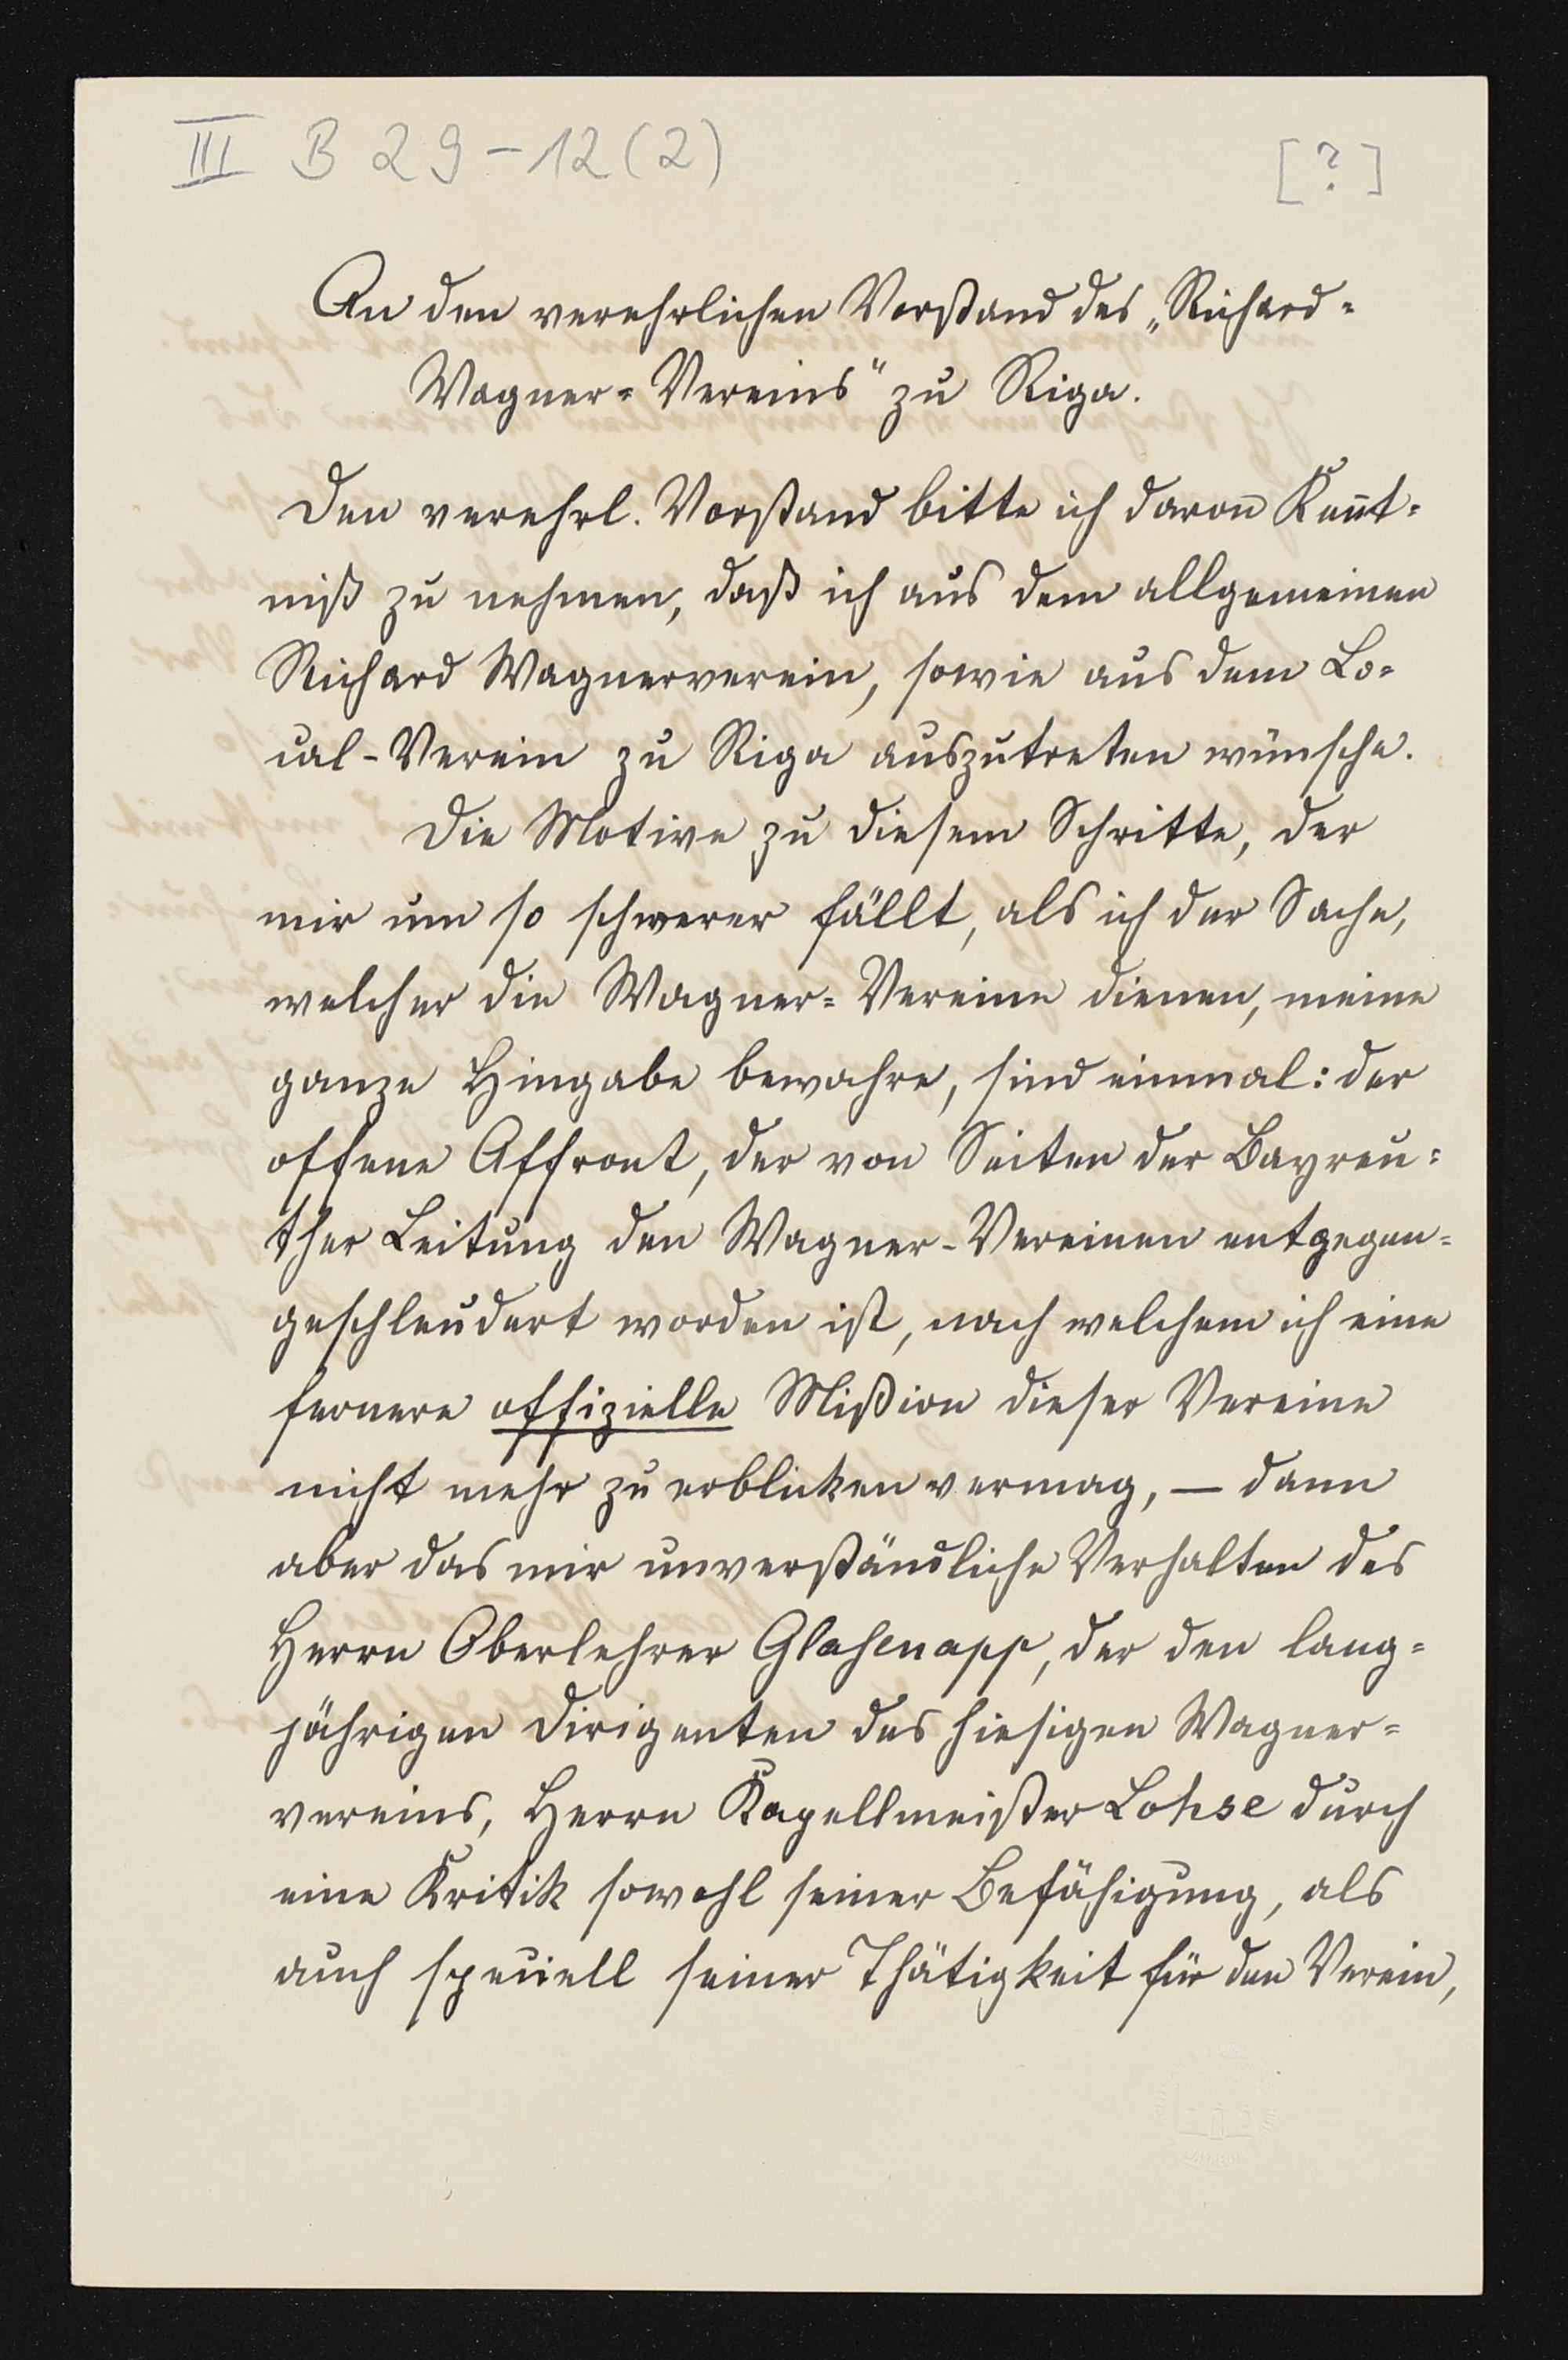 III B 29-12(2)
[?]
An den verehrlichen Vorstand des „Richard-
Wagner-Vereins" zu Riga.
Den verehrl. Vorstand bitte ich davon Kennt-
niß zu nehmen, daß ich aus dem allgemeinen
Richard Wagnerverein, sowie aus dem Lo-
cal-Verein zu Riga auszutreten wünsche.
Die Motive zu diesem Schritte, der
mir um so schwerer fällt, als ich der Sache,
welcher die Wagner-Vereine dienen, meine
ganze Hingabe bewahre, sind einmal: der
offene Affront, der von Seiten der Bayreu-
ther Leitung den Wagner-Vereinen entgegen-
geschleudert worden ist, nach welchem ich eine
fernere offizielle Mißion dieser Vereine
nicht mehr zu erblicken vermag, — dann
aber das mir unverständliche Verhalten des
Herrn Oberlehrer Glasenapp, der den lang-
jährigen Dirigenten des hiesigen Wagner-
vereins, Herrn Kapellmeister Lohse durch
eine Kritik sowohl seiner Befähigung, als
auch speciell seiner Thätigkeit für den Verein,